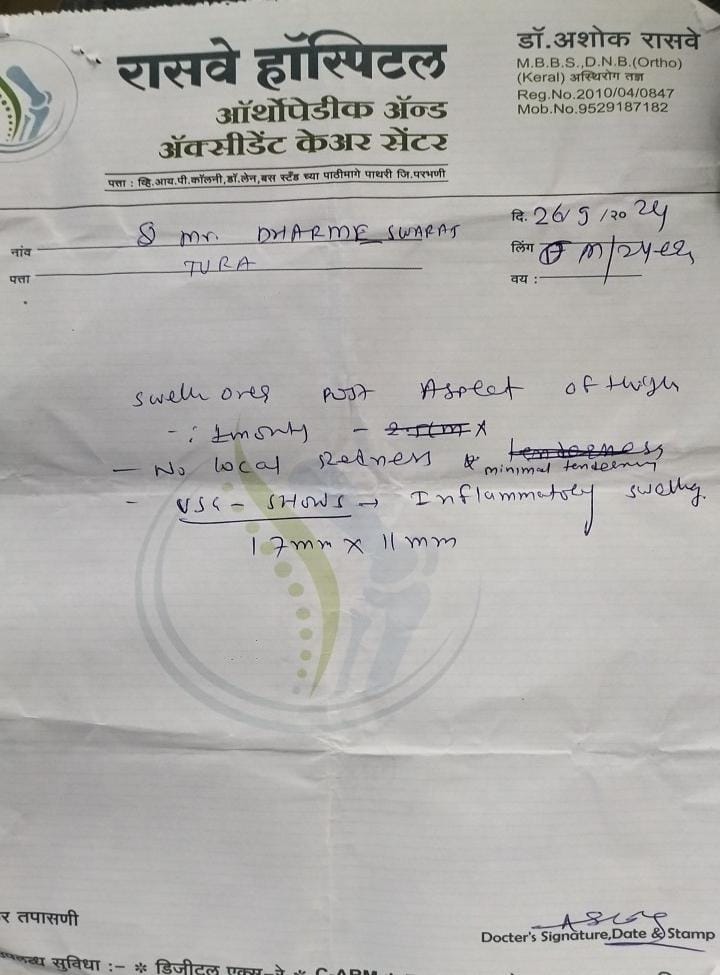 रासवे हॉस्पिटल
ऑर्थोपेडीक ॲन्ड
ॲक्सीडेंट केअर सेंटर
पत्ता : व्हि.आय.पी.कॉलनी,डॉ.लेन,बस स्टँड च्या पाठीमागे पाथरी जि.परभणी
डॉ.अशोक रासवे
M.B.B.S.,D.N.B.(Ortho)
(Keral) अस्थिरोग तज्ञ
Reg.No.2010/04/0847
Mob.No.9529187182
दि. 26/9/2024
नांव Mr. DHARME SWARAJ
लिंग M/24
पत्ता TURA
वय :
swell over post Aspect of thigh
-: 1month -
- No local Redness & minimal tenderness
- USG - SHOWS → Inflammatory swelling.
17mm x 11mm
र तपासणी
Docter's Signature,Date & Stamp
उपलब्ध सुविधा :- * डिजीटल एक्स-रे * C-ARM